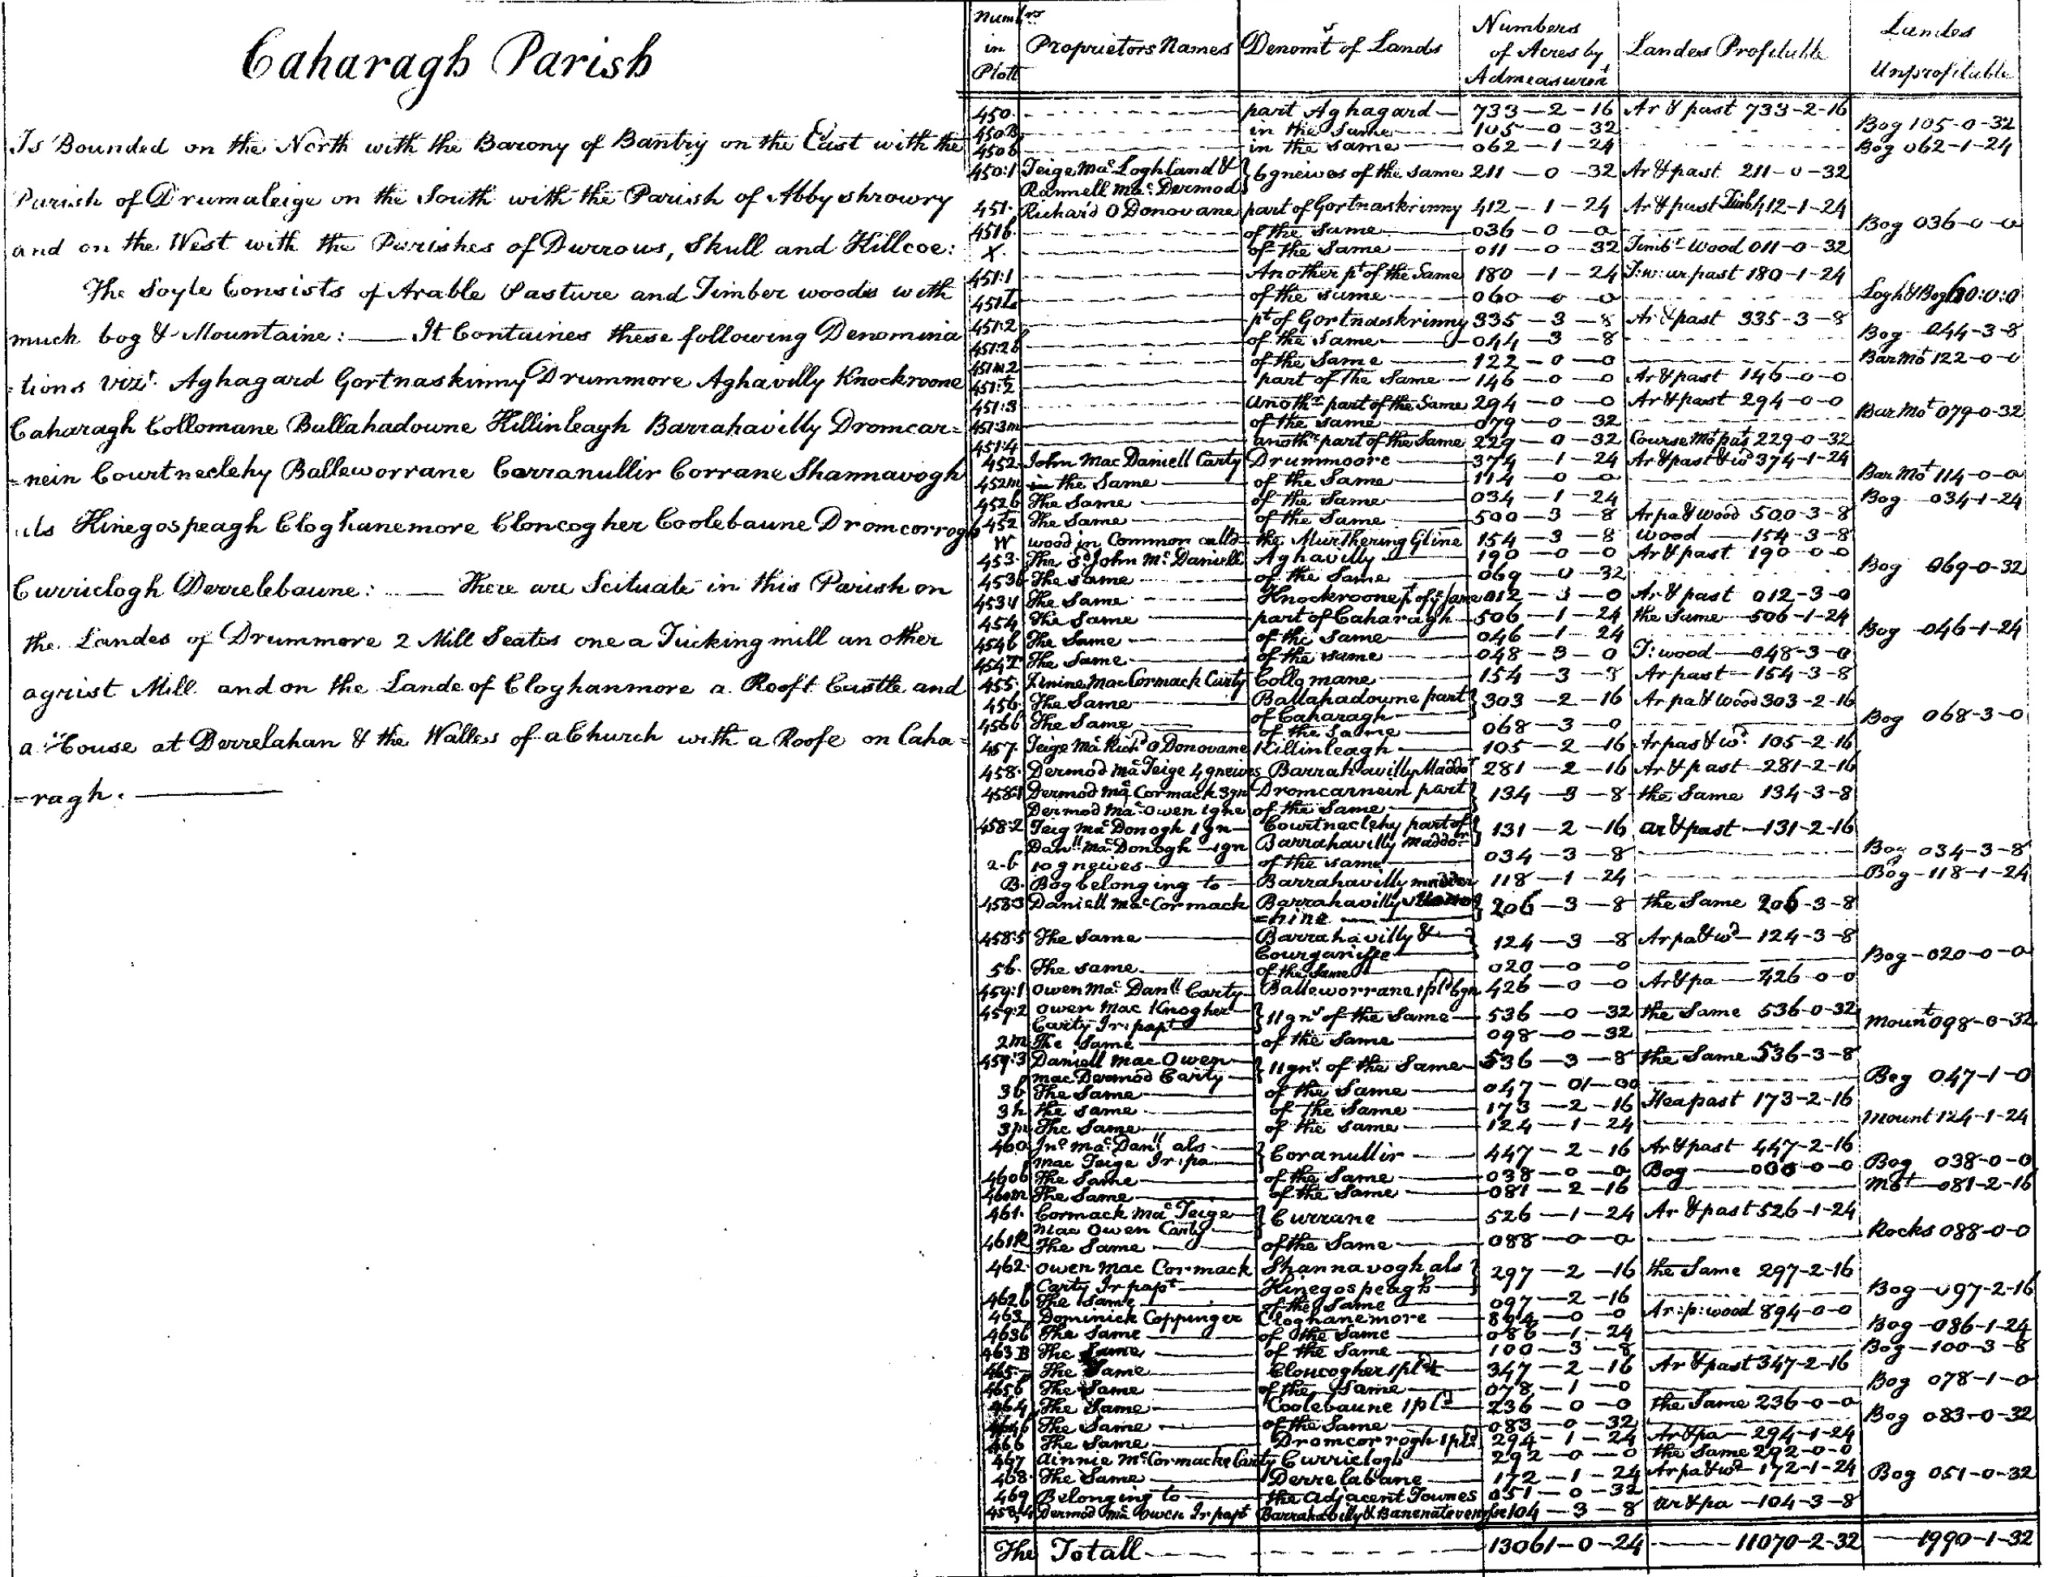 Caharagh Parish
Is Bounded on the North with the Barony of Bantry on the East with the
Parish of Drumaleige on the South with the Parish of Abby shrowry
and on the West with the Parishes of Durrous, Skull and Killcoe:
The Soyle Consists of Arable Pasture and Timber woods with
much bog & Mountaine: — It Containes these following Denomina
=tions vizt. Aghagard Gortnaskinny Drummore Aghavilly Knockroone
Caharagh Collomane Ballahadowne Killinleagh Barrahavilly Dromcar=
=nein Courtneclehy Balleworrane Carranullir Corrane Shannavogh
als Kinegospeagh Cloghanemore Cloncogher Coolebaune Dromcorrogh
Curriclogh Derrelebaune: — There are Scituate in this Parish on
the Landes of Drummore 2 Mill Seates one a Tucking mill an other
agrist Mill and on the Lande of Cloghanmore a Rooft Castle and
a House at Derrelahan & the Walles of a Church with a Roofe on Caha=
=ragh. —
Numbrs in Plott | Proprietors Names | Denomts of Lands | Numbers of Acres by Admeasuremt | Landes Profitable | Landes Unprofitable
450. part Aghagard — 733-2-16 Ar & past 733-2-16
450B in the same — 105-0-32 Bog 105-0-32
450b in the same — 062-1-24 Bog 062-1-24
450:1 Teige Mac Loghland & Rannell Mac Dermod } 6 gneives of the same 211-0-32 Ar & past 211-0-32
451. Richard O Donovane part of Gortnaskrinny 412-1-24 Ar & past Timb 412-1-24
451b of the same 036-0-0 Bog 036-0-0
X. of the Same 011-0-32 Timbr Wood 011-0-32
451:1 Another pt of the Same 180-1-24 T:w: ar past 180-1-24
451L of the same 060-0-0 Logh & Bog 60:0:0
451:2 pt of Gortnaskrinny 335-3-8 Ar & past 335-3-8
451:2b of the Same 044-3-8 Bog 044-3-8
451m2 of the Same 122-0-0 Bar Mot 122-0-0
451:2 part of The Same 146-0-0 Ar & past 146-0-0
451:3 anothr part of the Same 294-0-0 Ar & past 294-0-0
451:3m of the same 079-0-32 Bar Mot 079-0-32
451:4 anothr part of the Same 229-0-32 Course Mot past 229-0-32
452 John Mac Daniell Carty Drummoore 374-1-24 Ar & past & wd 374-1-24
452m the Same of the Same 114-0-0 Bar Mot 114-0-0
452b The Same of the Same 034-1-24 Bog 034-1-24
452 The Same of the Same 500-3-8 Ar pa & wood 500-3-8
W wood in Common calld the Murthering Gline 154-3-8 Wood 154-3-8
453. The sd John Mc Daniell Aghavilly 190-0-0 Ar & past 190-0-0
453b The same of the Same 069-0-32 Bog 069-0-32
453 The Same Knockroone pt of ye Same 012-3-0 Ar & past 012-3-0
454 The Same part of Caharagh 506-1-24 the Same 506-1-24
454b The Same of the same 046-1-24 Bog 046-1-24
454T The Same of the same 048-3-0 T: wood 048-3-0
455. Finine Mac Cormack Carty Collomane 154-3-8 Ar past 154-3-8
456 The Same Ballahadowne part of Caharagh } 303-2-16 Ar pa & wood 303-2-16
456b The Same of the Same 068-3-0 Bog 068-3-0
457. Teige Mac Richd O Donovane Killinleagh 105-2-16 Ar pas & wd. 105-2-16
458. Dermod Mac Teige 4 gneives Barrahavilly Maddor 281-2-16 Ar & past 281-2-16
458:1 Dermod Mac Cormack 3gn Dermod Mac Owen 1 gne Dromcarnein part of the Same } 134-3-8 the Same 134-3-8
458:2 Teig Mac Donogh 1 gn Danll Mac Donogh 1gn Courtneclehy part of Barrahavilly maddor } 131-2-16 ar & past 131-2-16
2-b 10 gneives of the same 034-3-8 Bog 034-3-8
B. Bog belonging to Barrahavilly maddor 118-1-24 Bog 118-1-24
458:3 Daniell Mac Cormack Barrahavilly =hine } 206-3-8 the Same 206-3-8
458:5 The Same Barrahavilly & } 124-3-8 Ar pa & wd 124-3-8
5b. The same of the Same 020-0-0 Bog 020-0-0
459:1 Owen Mac Danll Carty Balleworrane 1 pld 6 gn 426-0-0 Ar & pa 426-0-0
459:2 Owen Mac Knogher Carty Ir: papt } 11 gns of the Same 536-0-32 the Same 536-0-32
2m The Same of the Same 098-0-32 Mount 098-0-32
459:3 Daniell Mac Owen mac Dermod Carty } 11 gns. of the Same 536-3-8 the Same 536-3-8
3b The Same of the Same 047-01-00 Bog 047-1-0
3h the same of the Same 173-2-16 Hea past 173-2-16
3m The Same of the Same 124-1-24 Mount 124-1-24
460 Jno Mac Danll als mac Teige Ir: pa } Coranullir 447-2-16 Ar & past 447-2-16
460b The Same of the Same 038-0-0 Bog 000-0-0 Bog 038-0-0
460m The Same of the Same 081-2-16 Mot 081-2-16
461. Cormack Mac Teige Mac Owen Carty } Currane 526-1-24 Ar & past 526-1-24
461R The Same of the Same 088-0-0 Rocks 088-0-0
462. Owen Mac Cormack Carty Ir papt Shannavogh als Kinegospeagh } 297-2-16 the Same 297-2-16
462b The Same of the Same 097-2-16 Bog 097-2-16
463 Dominick Coppinger Cloghanemore 894-0-0 Ar: p: wood 894-0-0
463b The Same of the Same 086-1-24 Bog 086-1-24
463B The Same of the Same 100-3-8 Bog 100-3-8
465 The Same Cloncogher 1 pld 347-2-16 Ar & past 347-2-16
465b The Same of the Same 078-1-0 Bog 078-1-0
464 The Same Coolebaune 1 pld 236-0-0 the Same 236-0-0
464b The Same of the Same 083-0-32 Bog 083-0-32
466 The Same Dromcorrogh 1 pld 294-1-24 Ar & pa 294-1-24
467 Ainnie Mc Cormacke Carty Curriclogh 292-0-0 the Same 292-0-0
468. The Same Derrelabane 172-1-24 Ar pa & wd 172-1-24
469 Belonging to the Adjacent Townes 051-0-32 Bog 051-0-32
458:4 Dermod Mac Owen Ir papt Barrahavilly & 104-3-8 ar & pa 104-3-8
The Totall 13061-0-24 11070-2-32 1990-1-32